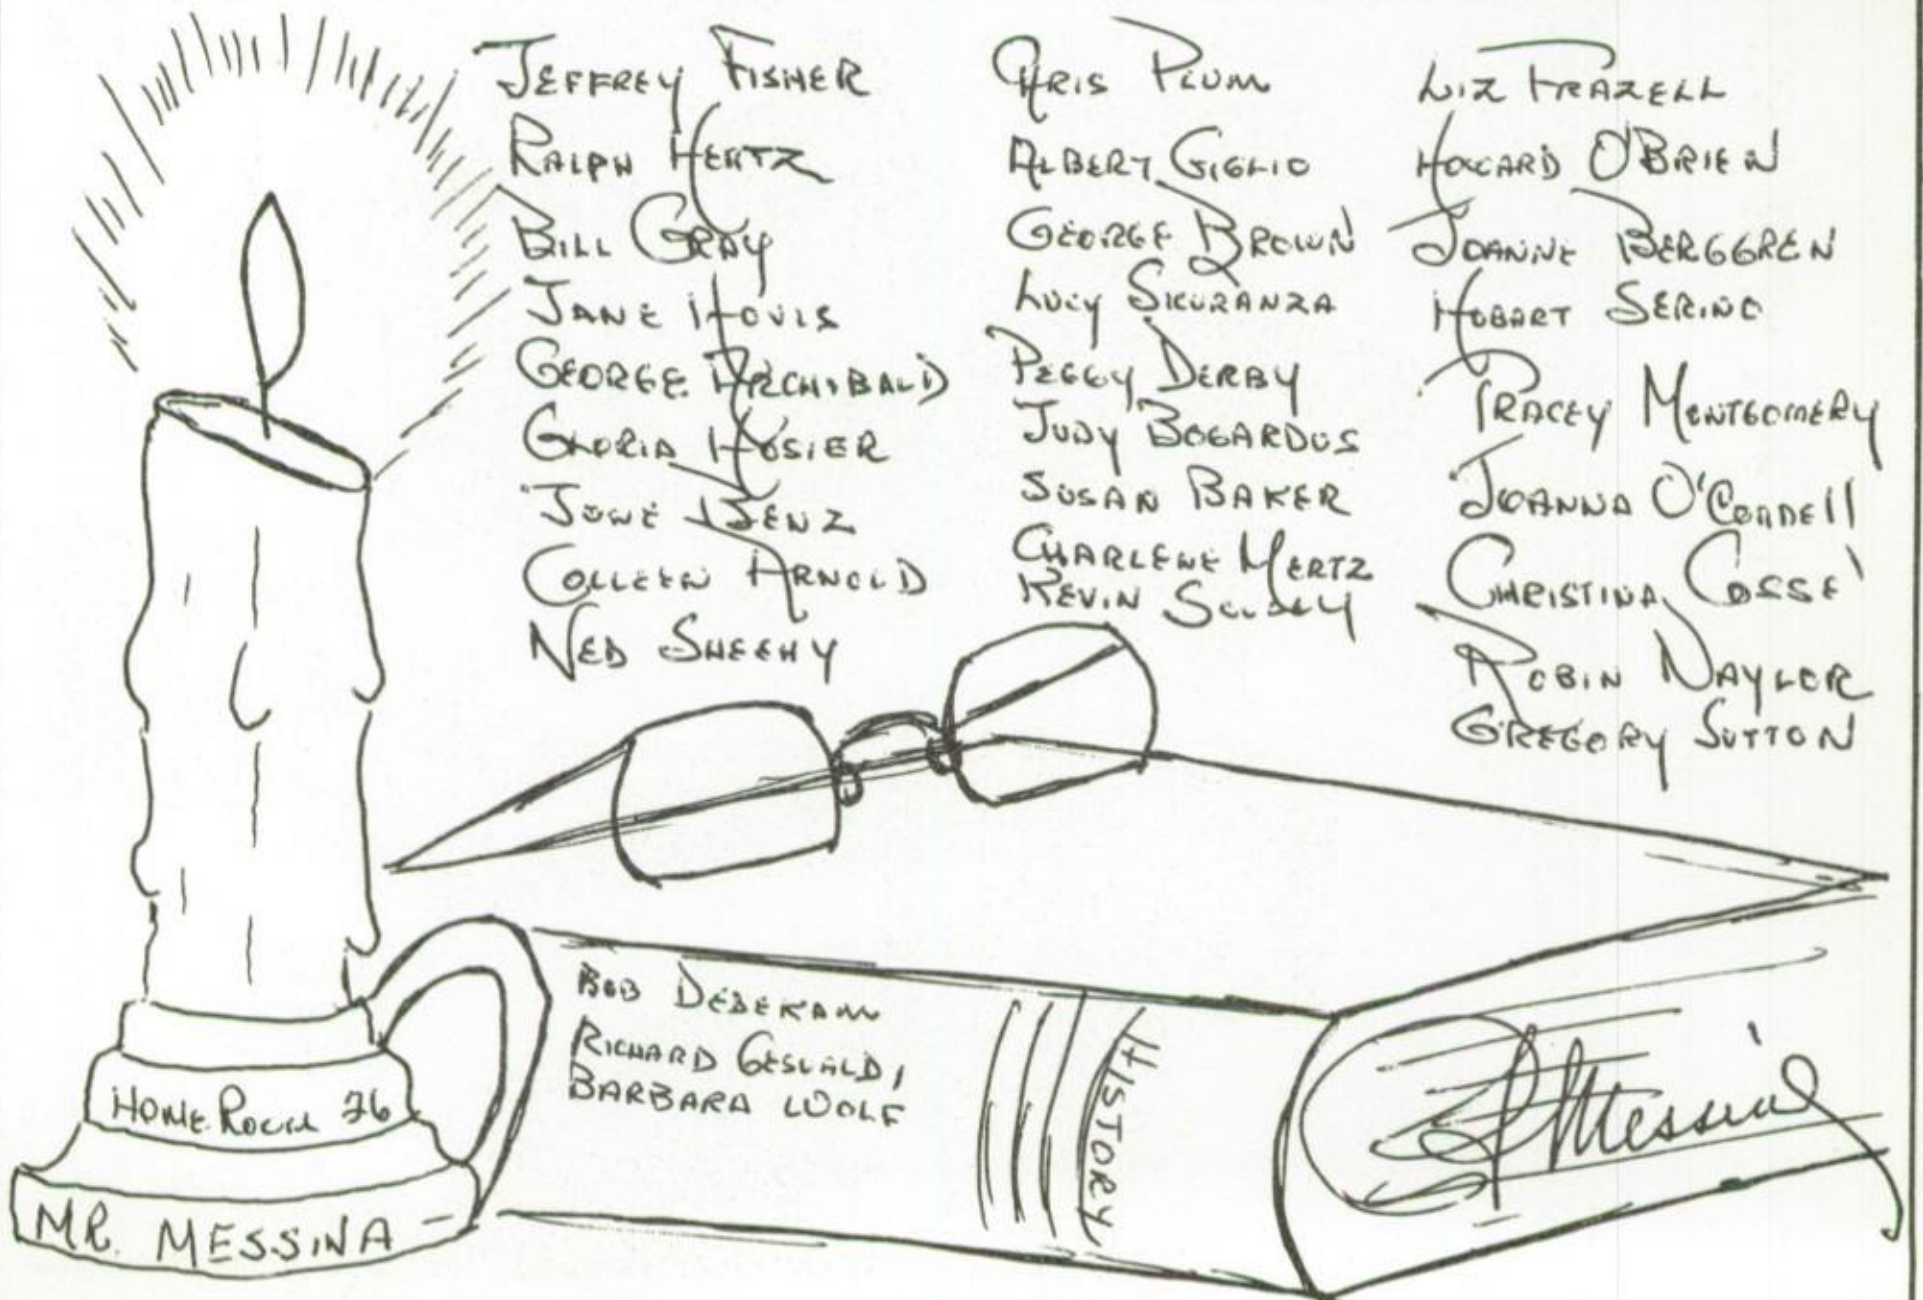 JEFFREY FISHER
RALPH HERTZ
BILL GRAY
JANE HOVIS
GEORGE ARCHIBALD
GLORIA HOSIER
JUNE BENZ
COLLEEN ARNOLD
NED SHEEHY
CHRIS PLUM
ALBERT GIGLIO
GEORGE BROWN
LUCY SKURANZA
PEGGY DERBY
JUDY BOGARDUS
SUSAN BAKER
CHARLENE MERTZ
KEVIN
LIZ FRAZELL
HOWARD O'BRIEN
JOANNE BERGGREN
HOBART SERINO
TRACEY MONTGOMERY
JOANNA
CHRISTINA COSSE'
ROBIN NAYLOR
GREGORY SUTTON
BOB
RICHARD GESUALDI
BARBARA WOLF
HISTORY
Messina
HOME ROOM 26
MR. MESSINA